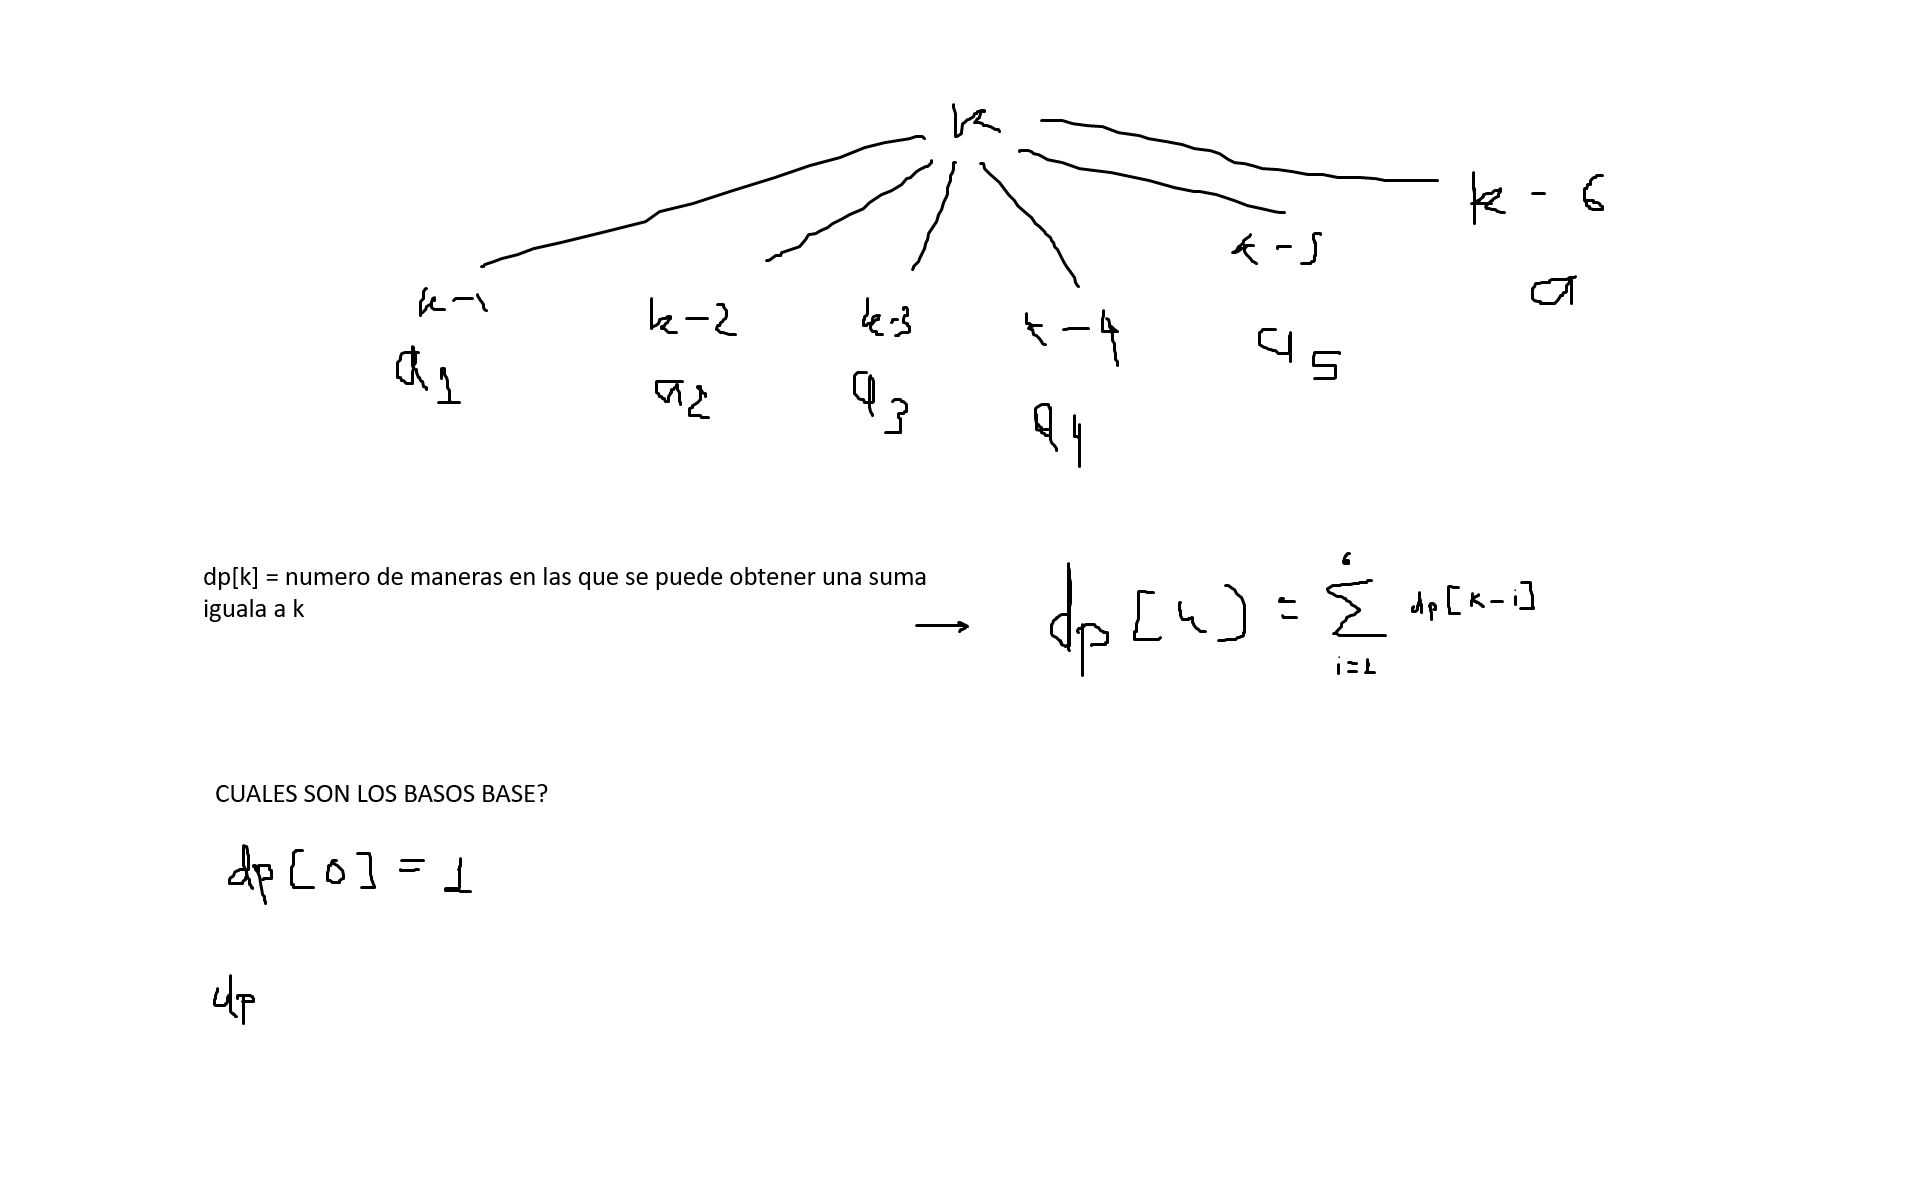 k
k-1 k-2 k-3 k-4 k-5 k - 6
a1 a2 a3 a4 a5 a
dp[k] = numero de maneras en las que se puede obtener una suma
iguala a k
→ dp[k] = 6 ∑ i=1 dp[k-i]
CUALES SON LOS BASOS BASE?
dp[0] = 1
dp